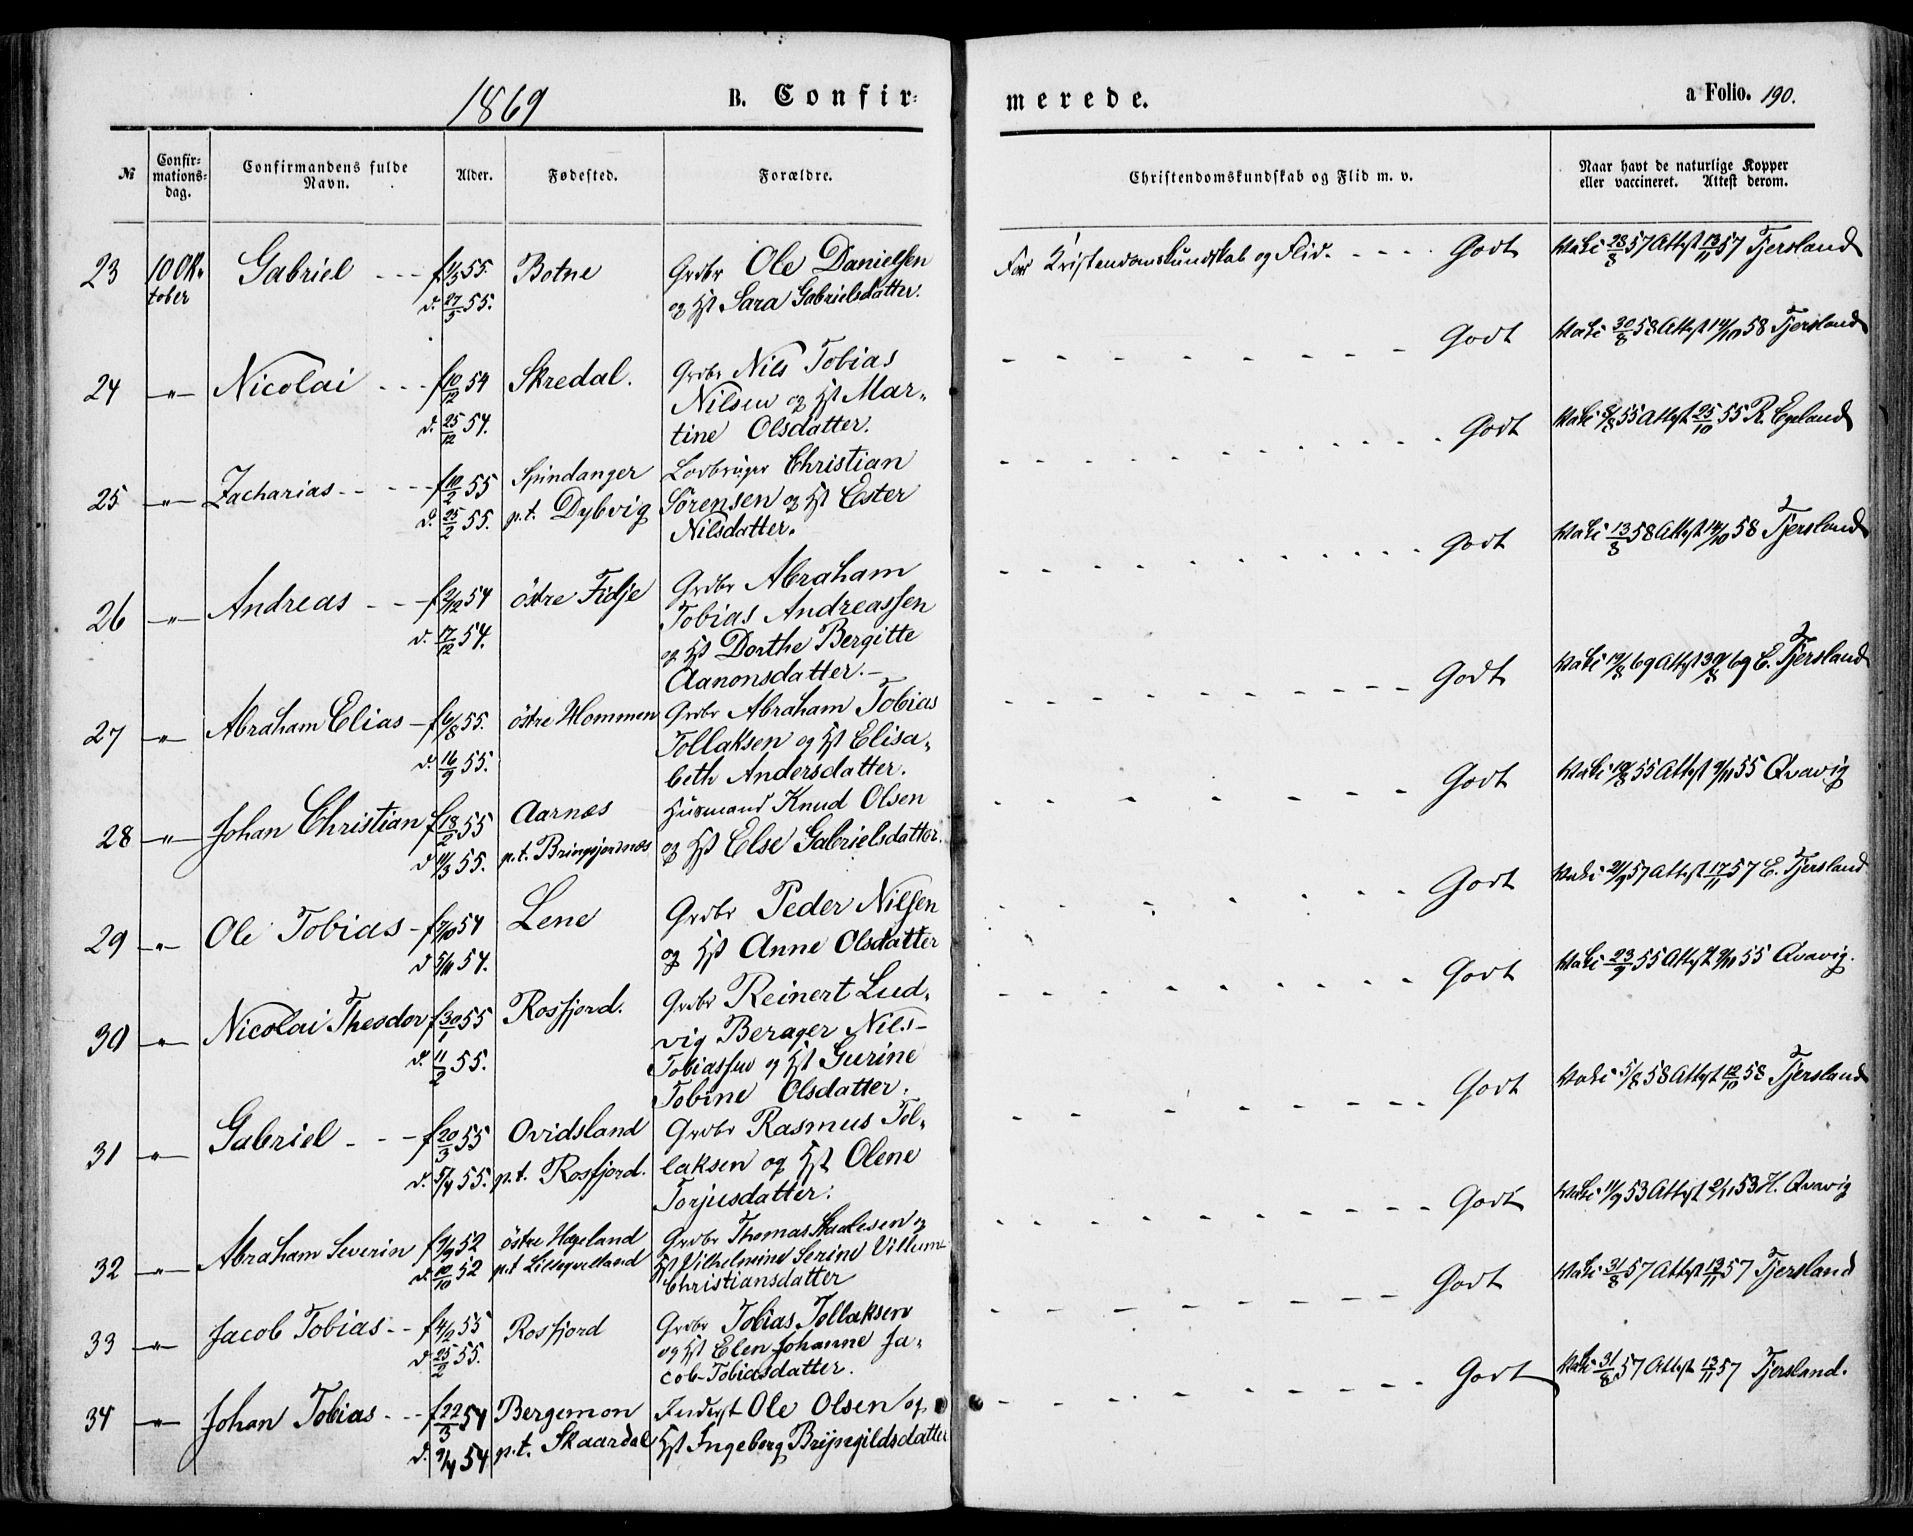 1869 B. Confir-
merede. a Folio. 190.
№ Confir-mations-dag. Confirmandens fulde Navn. Alder. Fødested. Forældre. Christendomskundskab og Flid m. v. Naar havt de naturlige Kopper eller vaccineret. Attest derom.
23 10 Ok- Gabriel - - - f 1/5 55. Botne Grdbr Ole Danielsen For Kristendomskundskab og Flid. - - - - Godt Vaki 28/8 57 Attest 13/11 57 Tjersland
tober d. 27/5 55. og Hst Sara Gabrielsdatter.
24 -"- Nicolai - - - f 10/12 54 Skredal. Grdbr Nils Tobias - - - - - - - - Godt Vaki 30/8 58 Attest 14/10 58 Tjersland
d. 25/12 54. Nilsen og Hst Mar-
tine Olsdatter.
25 -"- Zacharias - - - - f 10/2 55 Spindanger Lodbruger Christian - - - - - - - - Godt Vaki 8/8 55 Attest 25/10 55 R. Egeland
d. 25/2 55. p.t. Dybvig Sørensen og Hst Ester
Nilsdatter.
26 -"- Andreas - - - f 2/12 54 østre Fidje Grdbr Abraham - - - - - - - - Godt Vaki 13/8 58 Attest 14/10 58 Tjersland
d. 17/12 54. Tobias Andreassen
og Hst Dorthe Bergitte
Aanonsdatter. -
27 -"- Abraham Elias - f 6/8 55. østre Hommen Grdbr Abraham Tobias - - - - - - - - Godt Vaki 19/8 69 Attest 30/8 69 E. Tjersland
d. 16/9 55. Tollaksen og Hst Elisa-
beth Andersdatter.
28 -"- Johan Christian f 18/2 55 Aarnæs Husmand Knud Olsen - - - - - - - Godt Vaki 19/8 55 Attest 9/11 55 Qvavig
d 11/3 55. p.t. Bringsjordnes og Hst Else Gabrielsdatter.
29 -"- Ole Tobias - f 7/10 54 Lene Grdbr Peder Nilsen - - - - - - Godt Vaki 21/9 57 Attest 17/11 57 E. Tjersland
d 5/11 54. og Hst Anne Olsdatter
30 -"- Nicolai Theodor f 30/1 55 Rosfjord. Grdbr Reinert Lud- - - - - - - - - Godt Vaki 23/9 55 Attest 9/11 55 Qvavig.
d. 11/2 55. vig Berager Nils-
Tobiassen og Hst Gurine
Tobine Olsdatter.
31 -"- Gabriel - - - f 20/3 55 Ovidsland Grdbr Rasmus Tol- - - - - - - - - Godt Vaki 5/8 58 Attest 12/10 58 Tjersland
d. 5/4 55. p.t. Rosfjord. laksen og Hst Olene
Torjusdatter.
32 -"- Abraham Severin f 9/9 52 østre Hægeland Grdbr Thomas Staalesen og - - - - - - - - Godt Vaki 11/9 53 Attest 2/11 53 H. Qvavig
d. 10/10 52 p.t Lilleqvelland Hst Vilhelmine Serine Villum-
Christiansdatter
33 -"- Jacob Tobias - - f 4/2 55 Rosfjord Grdbr Tobias Tollaksen - - - - - - - - Godt Vaki 31/8 57 Attest 13/11 57 Tjersland
d 25/2 55. og Hst Elen Johanne Ja-
cob-Tobiasdatter.
34 -"- Johan Tobias - - f 22/3 54 Bergemon Inderst Ole Olsen og - - - - - - - - Godt Vaki 31/8 57 Attest 13/11 57 Tjersland.
d. 9/4 54 p.t. Skaardal Hst Ingeborg Brijngildsdatter